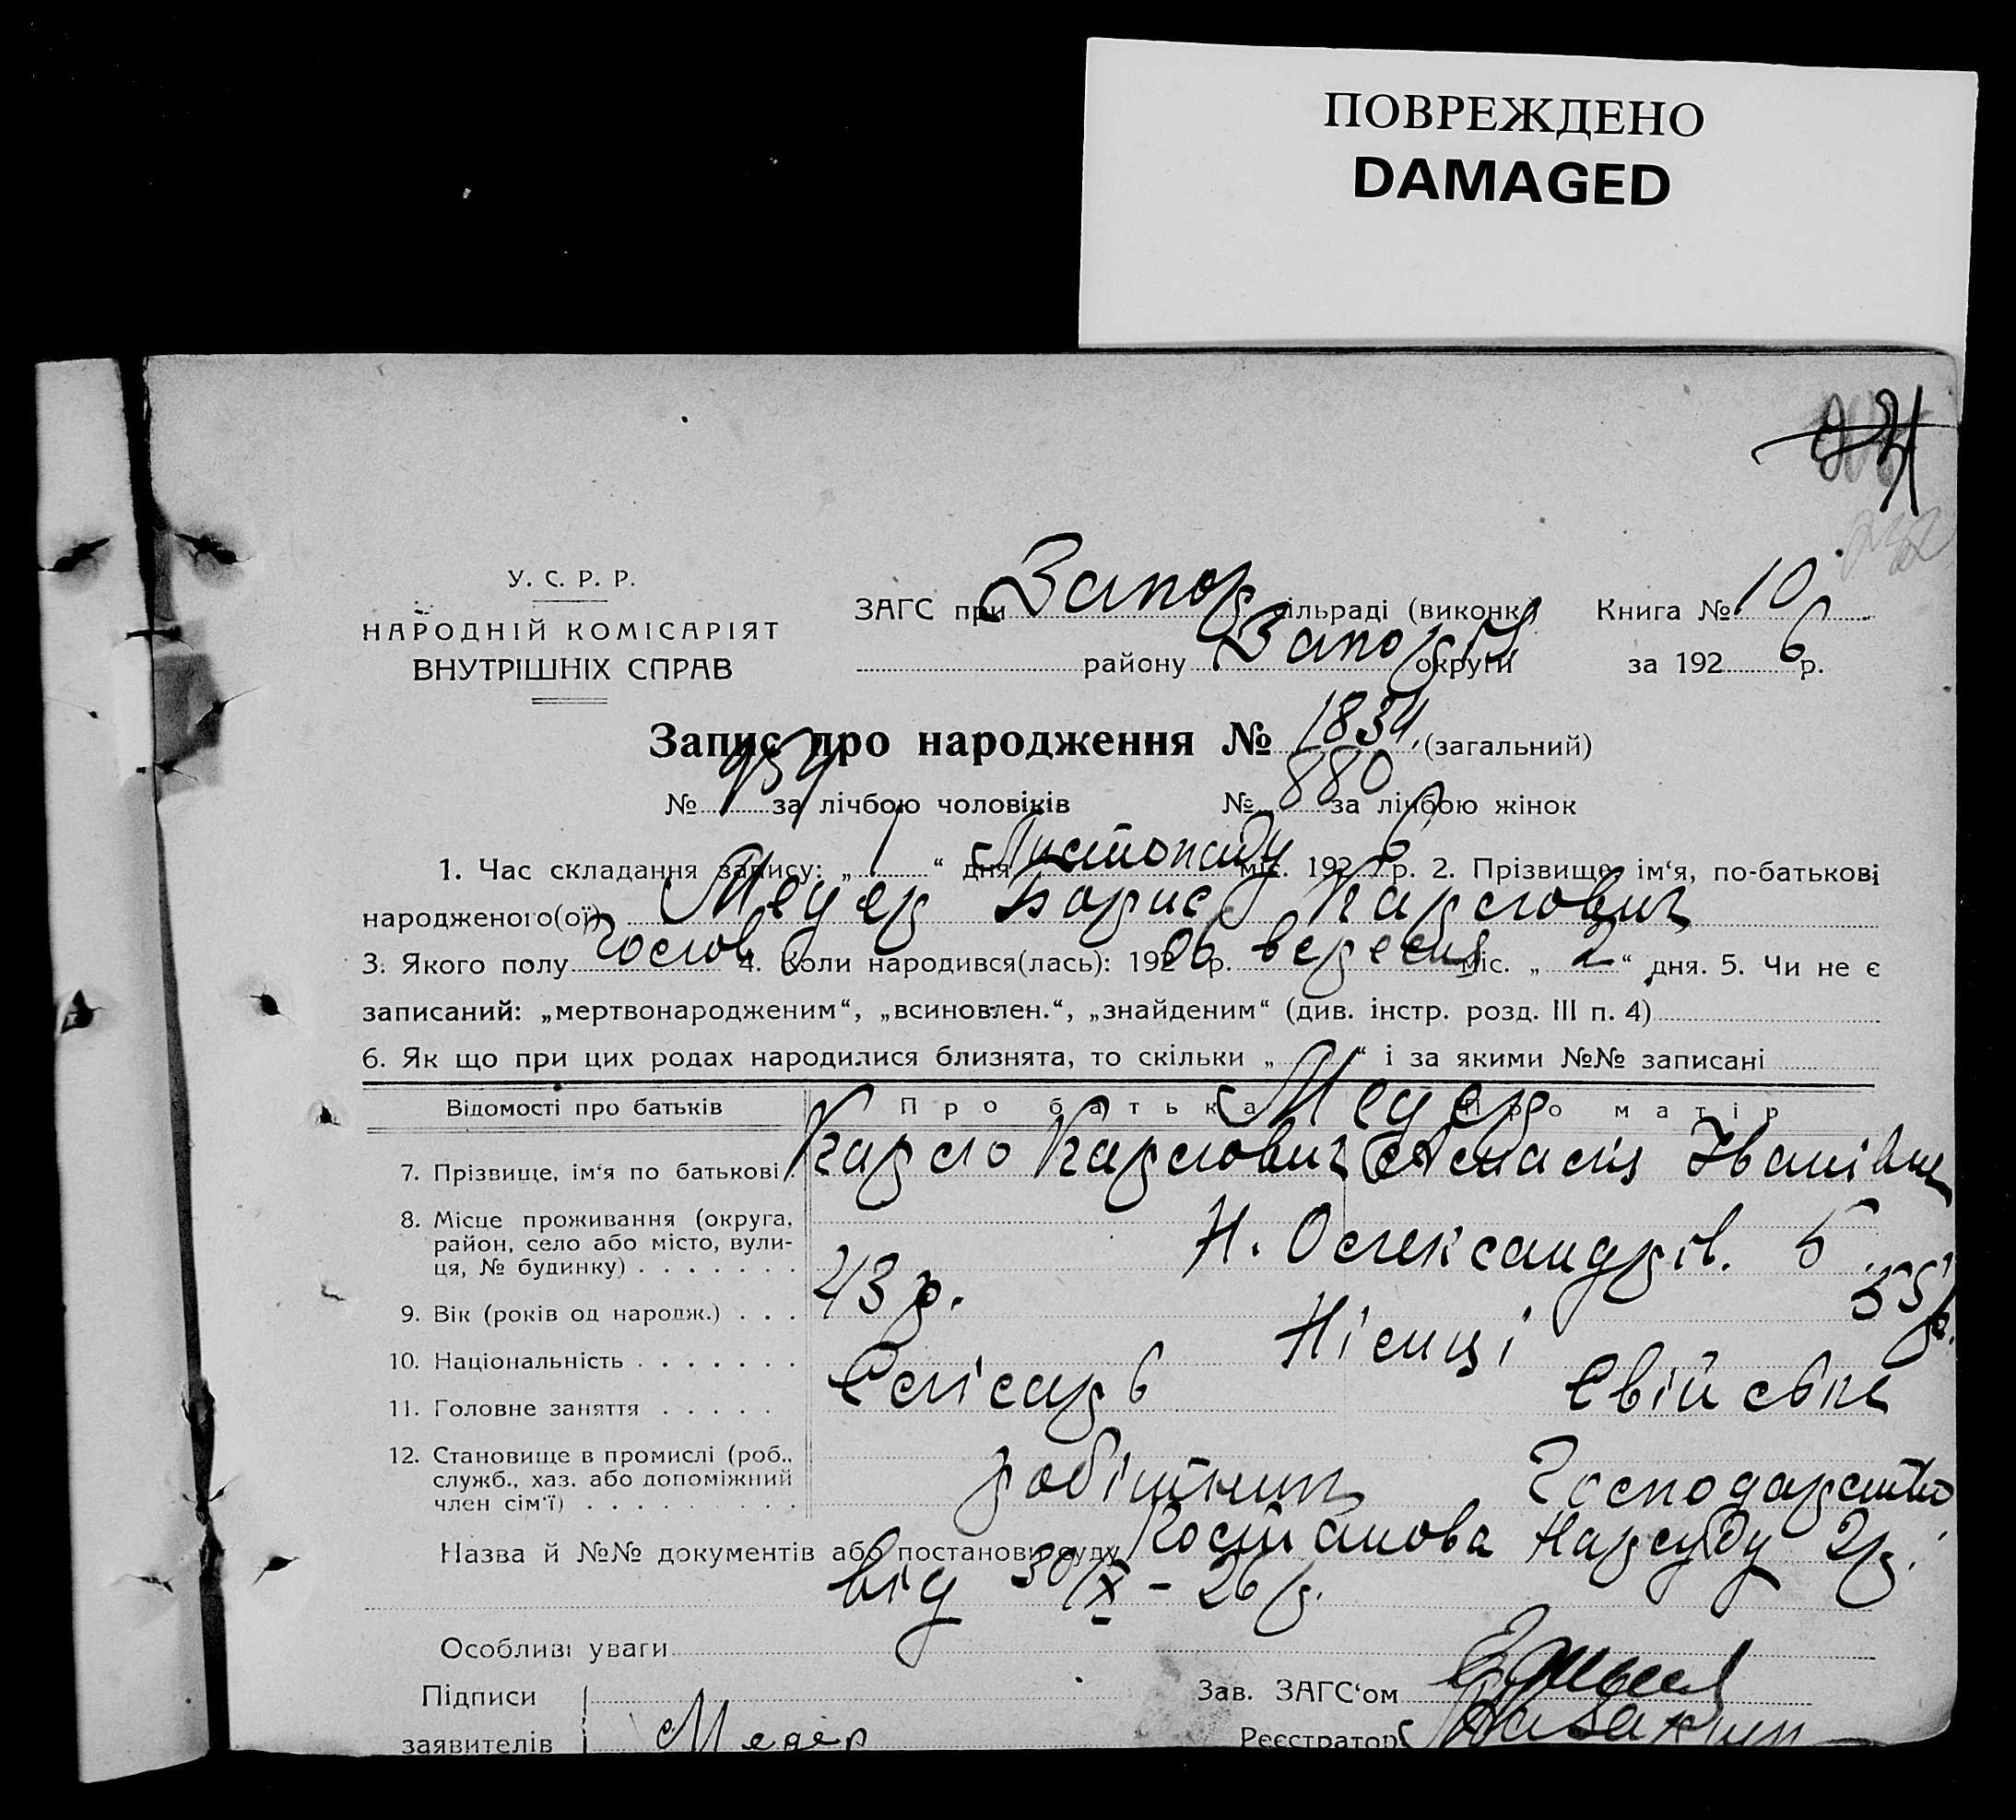 ПОВРЕЖДЕНО
DAMAGED
У. С. Р. Р.
НАРОДНІЙ КОМІСАРІЯТ
ВНУТРІШНІХ СПРАВ
ЗАГС при Запор сільраді (виконк.)
району Запоріз округи
Книга № 10
за 1926 р.
Запис про народження № 1834 (загальний)
№ 954 за лічбою чоловіків № 880 за лічбою жінок
1. Час складання запису: „ 1 “ дня Листопаду міс. 1926 р. 2. Прізвище, ім‘я, по-батькові
народженого(ої) Медер Борис Карлович
3. Якого полу чолов 4. Коли народився(лась): 1926 р. вересня міс. „ 2 “ дня. 5. Чи не є
записаний: „мертвонародженим“, „всиновлен.“, „знайденим“ (див. інстр. розд. III п. 4)
6. Як що при цих родах народилися близнята, то скільки „ “ і за якими №№ записані
Відомості про батьків Про батька Про матір
Медер
7. Прізвище, ім‘я по батькові Карло Карлович Іванівна
8. Місце проживання (округа,
район, село або місто, вули-
ця, № будинку) Н. Олександрів. 5
9. Вік (років од народж.) 43 р. 35 р.
10. Національність Німці
11. Головне заняття Слісарь Свійське
12. Становище в промислі (роб.,
служб., хаз. або допоміжний
член сім‘ї) робітник Господарство
Назва й №№ документів або постанови суду Постанова Нарсуду 2 р.
від 30/X - 26 р.
Особливі уваги
Підписи
заявителів Медер
Зав. ЗАГС‘ом
Реєстратор